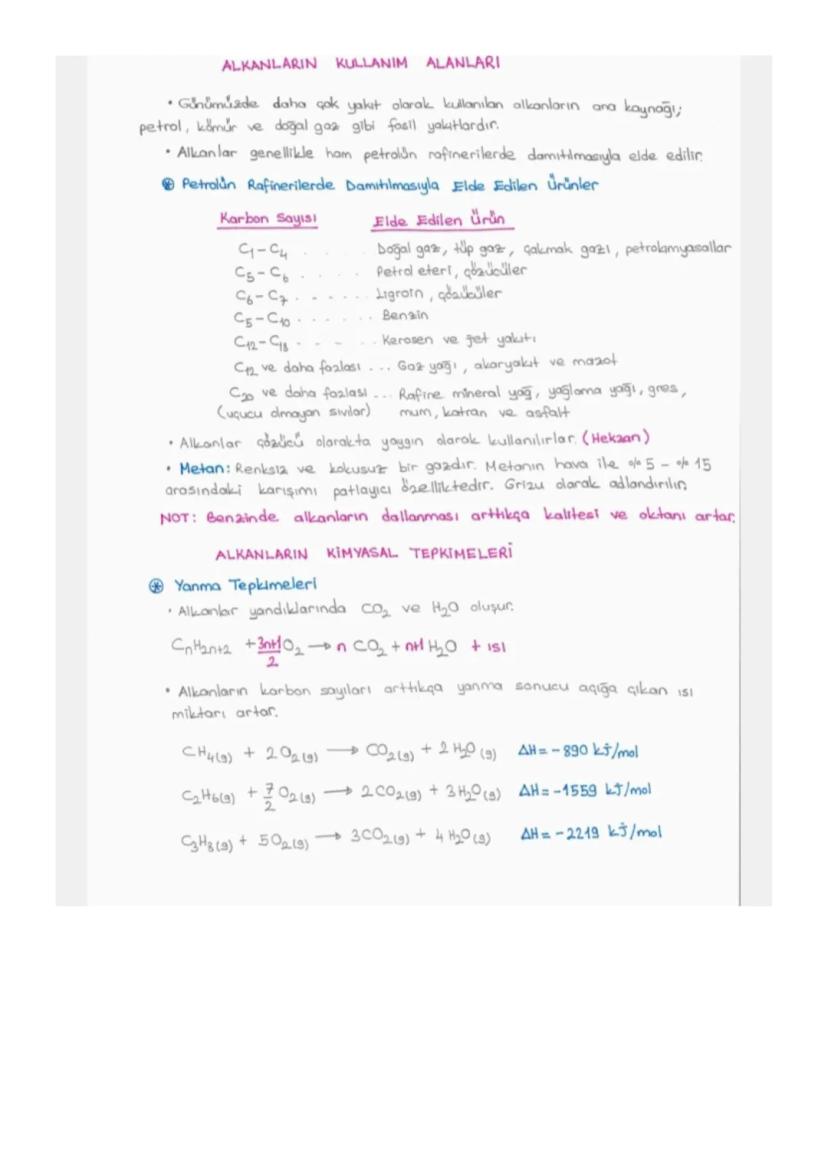 ALKANLARIN KULLANIM ALANLARI
• Günümüzde daha çok yakıt olarak kullanılan alkanların ana kaynağı;
petrol, kömür ve doğal gaz gibi fosil yakıtlardır.
• Alkanlar genellikle ham petrolün rafinerilerde damıtılmasıyla elde edilir.
⊛ Petrolün Rafinerilerde Damıtılmasıyla Elde Edilen Ürünler
Karbon Sayısı Elde Edilen Ürün
C₁-C₄ . . . Doğal gaz, tüp gaz, çakmak gazı, petrokimyasallar
C₅-C₆ . . . . . Petrol eteri, çözücüler
C₆-C₇ . . . . . . Ligroin, çözücüler
C₅-C₁₀ . . . . . . Benzin
C₁₂-C₁₈ . . - . . Kerosen ve jet yakıtı
C₁₂ ve daha fazlası ... Gaz yağı, akaryakıt ve mazot
C₂₀ ve daha fazlası ... Rafine mineral yağ, yağlama yağı, gres,
(uçucu olmayan sıvılar) mum, katran ve asfalt
• Alkanlar çözücü olarakta yaygın olarak kullanılırlar. (Hekzan)
• Metan: Renksiz ve kokusuz bir gazdır. Metanın hava ile % 5 - % 15
arasındaki karışımı patlayıcı özelliktedir. Grizu olarak adlandırılır.
NOT: Benzinde alkanların dallanması arttıkça kalitesi ve oktanı artar.
ALKANLARIN KİMYASAL TEPKİMELERİ
⊛ Yanma Tepkimeleri
• Alkanlar yandıklarında CO₂ ve H₂O oluşur.
CₙH₂ₙ₊₂ + 3n+1/2 O₂ → n CO₂ + n+1 H₂O + ısı
• Alkanların karbon sayıları arttıkça yanma sonucu açığa çıkan ısı
miktarı artar.
CH₄(g) + 2O₂(g) → CO₂(g) + 2H₂O(g) ΔH = -890 kJ/mol
C₂H₆(g) + 7/2 O₂(g) → 2CO₂(g) + 3H₂O(g) ΔH = -1559 kJ/mol
C₃H₈(g) + 5O₂(g) → 3CO₂(g) + 4H₂O(g) ΔH = -2219 kJ/mol